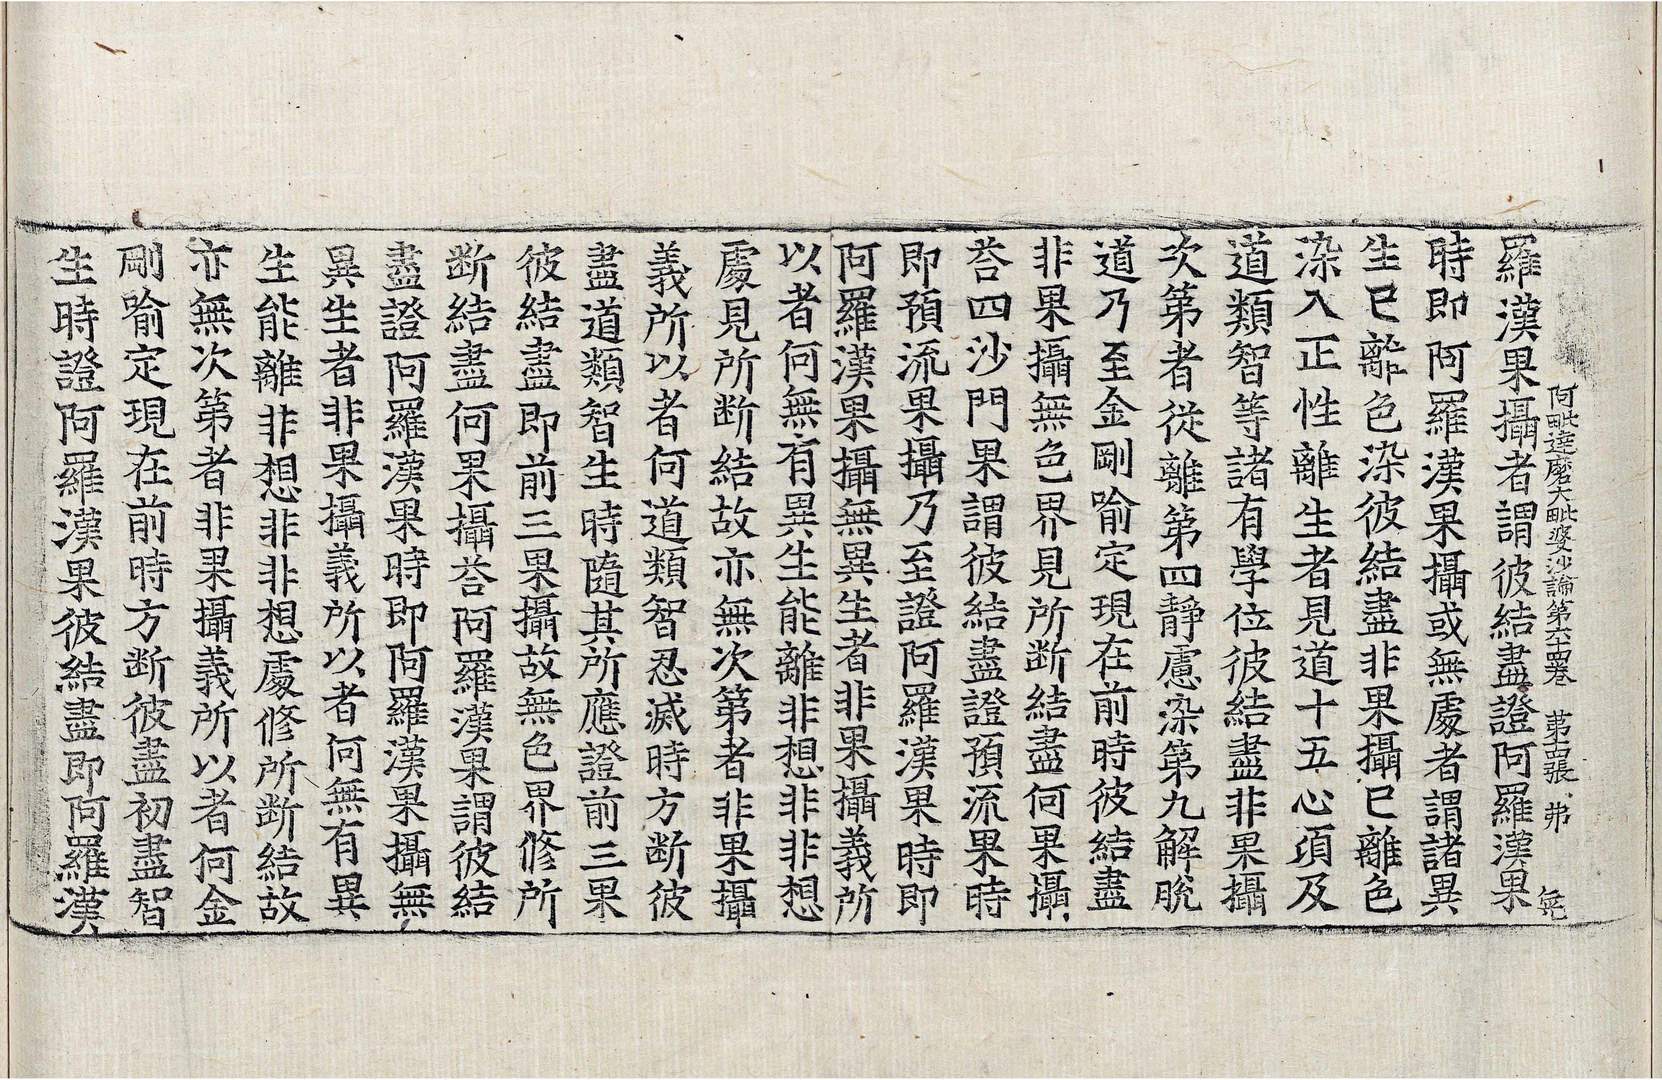 阿毗達磨大毗婆沙論第六十四卷 第十四張 弗
羅漢果攝者謂彼結盡證阿羅漢果
時即阿羅漢果攝或無處者謂諸異
生已離色染彼結盡非果攝已離色
染入正性離生者見道十五心須及
道類智等諸有學位彼結盡非果攝
次第者從離第四靜慮染第九解脫
道乃至金剛喻定現在前時彼結盡
非果攝無色界見所断結盡何果攝
荅四沙門果謂彼結盡證預流果時
即預流果攝乃至證阿羅漢果時即
阿羅漢果攝無異生者非果攝義所
以者何無有異生能離非想非非想
處見所断結故亦無次第者非果攝
義所以者何道類智忍滅時方断彼
盡道類智生時隨其所應證前三果
彼結盡即前三果攝故無色界修所
断結盡何果攝荅阿羅漢果謂彼結
盡證阿羅漢果時即阿羅漢果攝無
異生者非果攝義所以者何無有異
生能離非想非非想處修所断結故
亦無次第者非果攝義所以者何金
剛喻定現在前時方断彼盡初盡智
生時證阿羅漢果彼結盡即阿羅漢